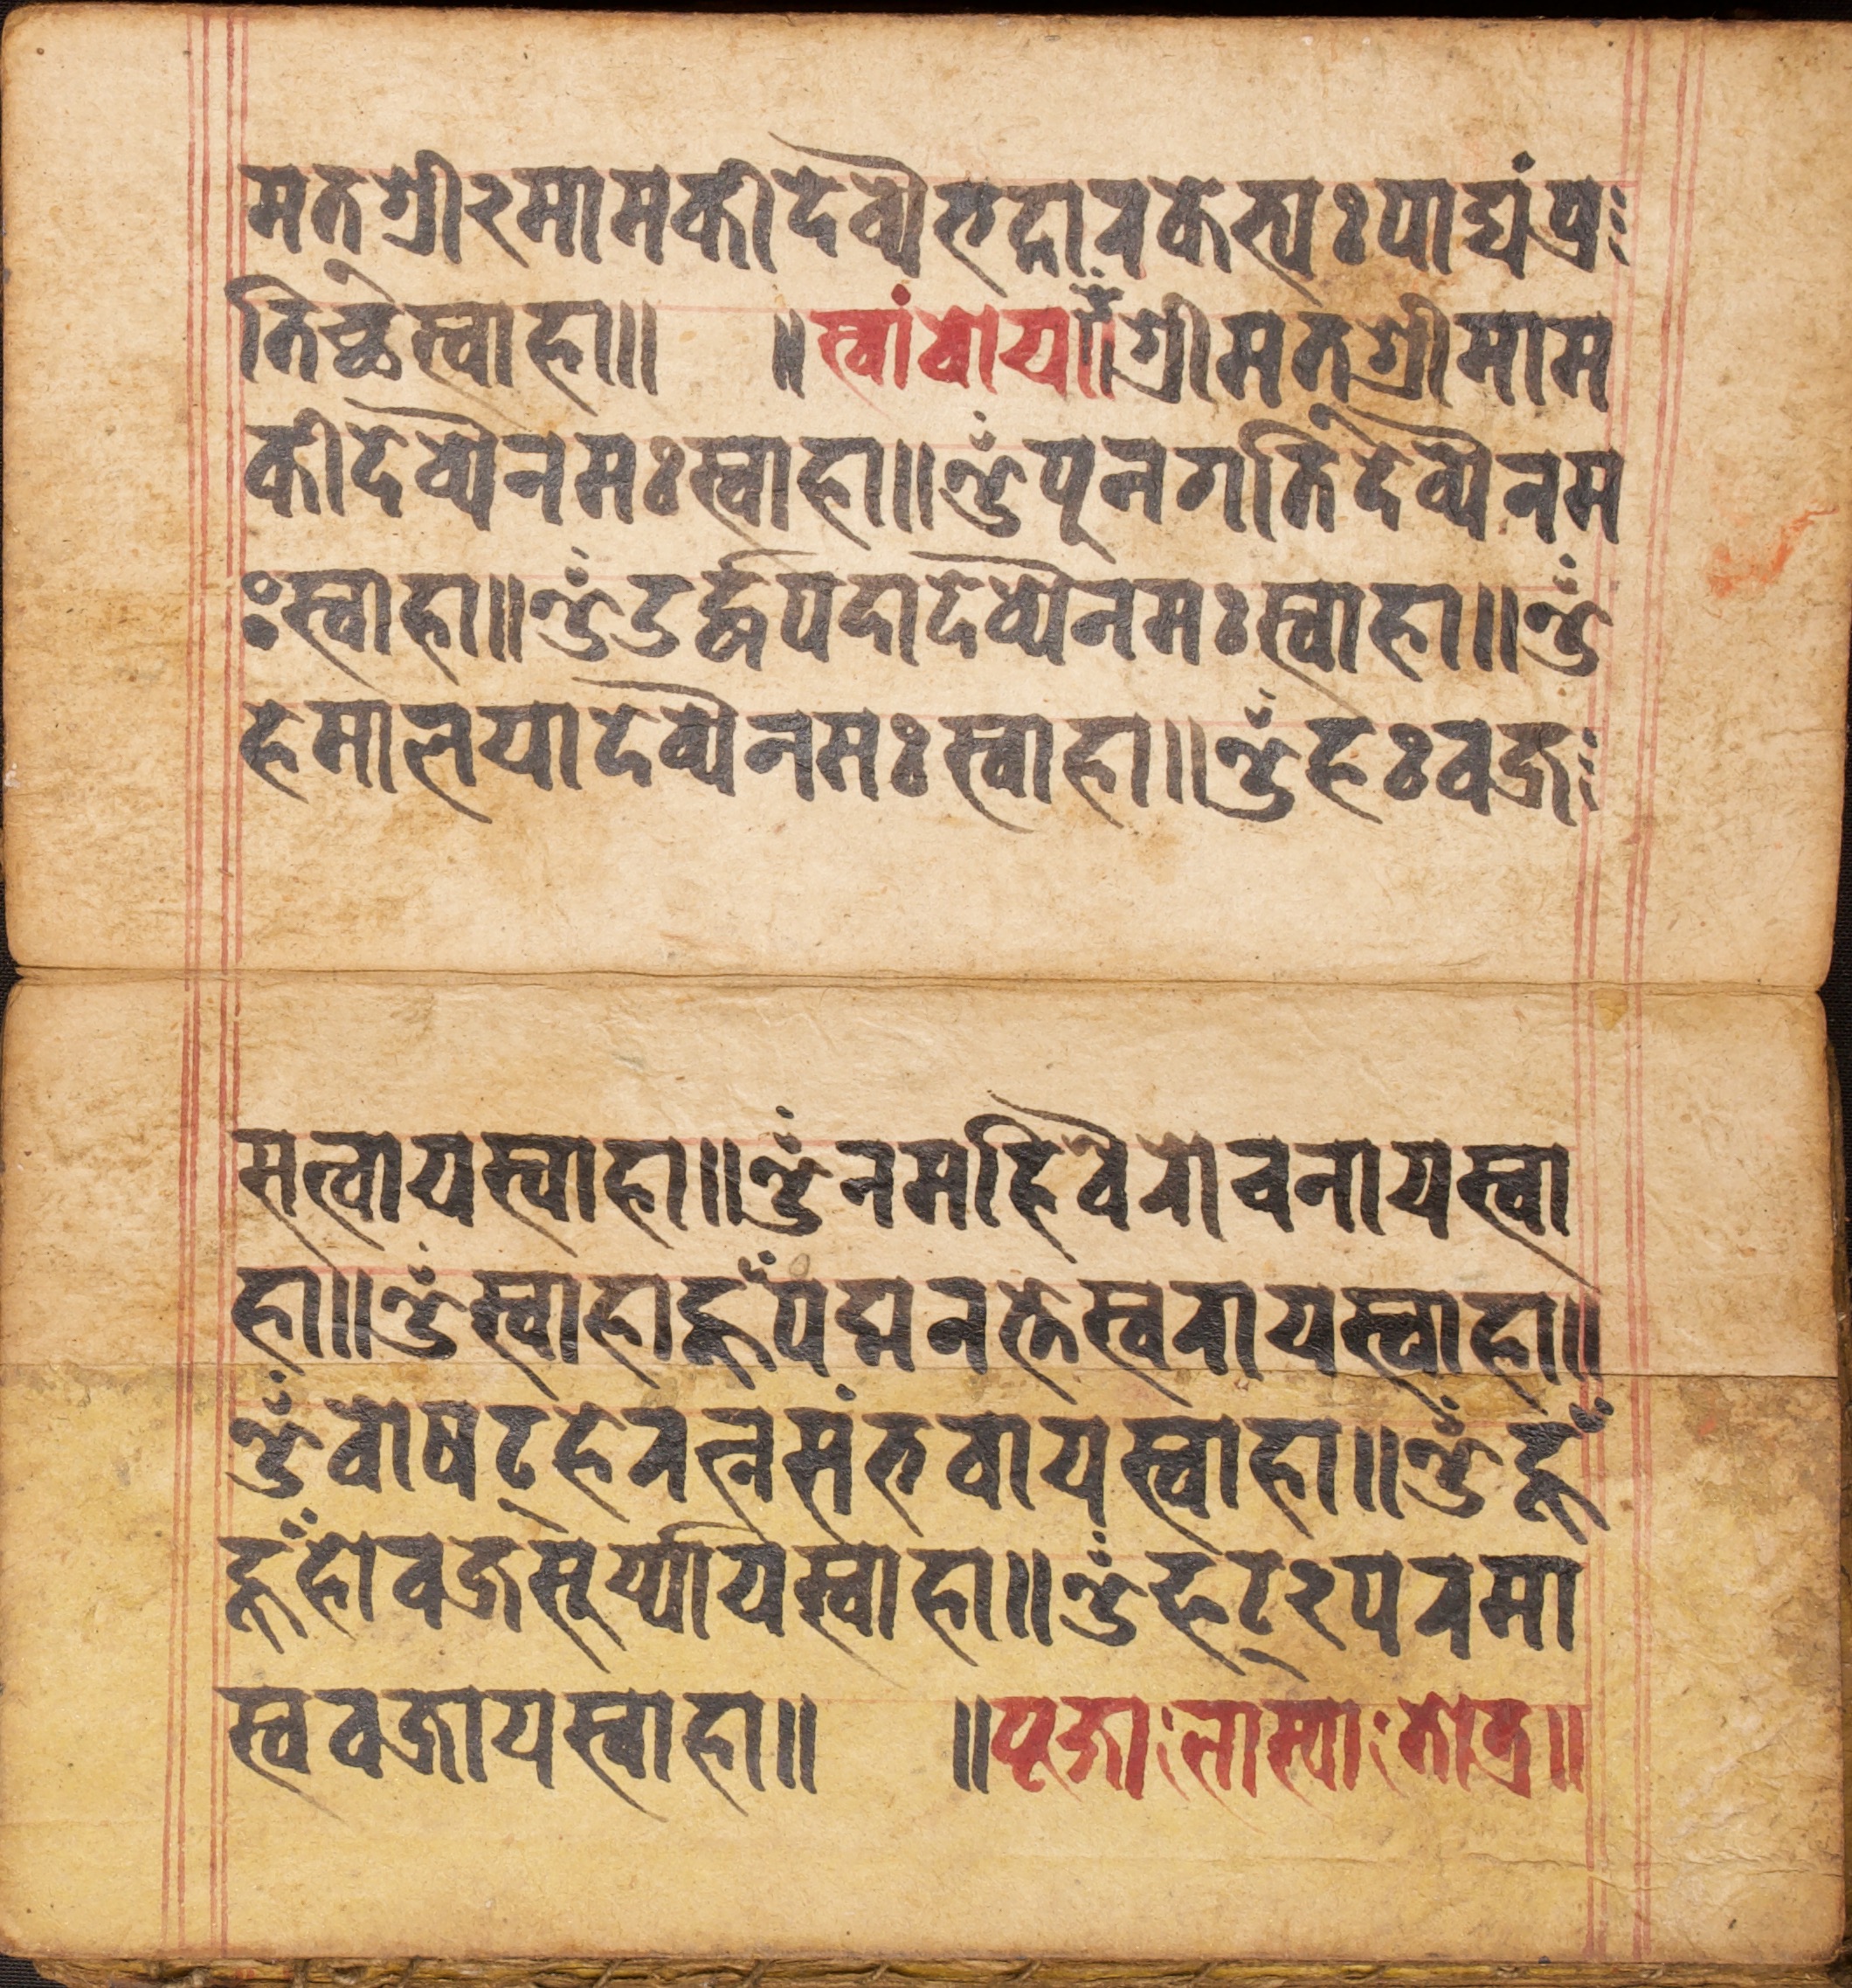 मतश्री२मामकीदेव्यैभट्टारकेभ्यःपाद्यंप्र
तिच्छेस्वाहा॥ ॥स्वांबोय॥ॐश्रीमतश्रीमाम
कीदेव्यैनमःस्वाहा॥ॐपूनगतिदेव्यैनम
ःस्वाहा॥ॐउर्द्धपदादेव्यैनमःस्वाहा॥ॐ
हेमालयादेव्यैनमःस्वाहा॥ॐहःवज्र
सत्वायस्वाहा॥ॐनमहिवैरोचनायस्वा
हा॥ॐस्वाहाहूँपद्मनर्तेस्वरायस्वाहा॥
ॐवोषट्हेरत्नसंभवायस्वाहा॥ॐहूँ
हूँहोवज्रसूर्य्यायस्वाहा॥ॐफट्२परमा
स्ववज्रायस्वाहा॥ ॥पूजाःलास्याःतोत्र॥